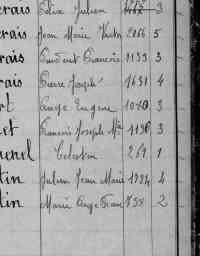 erais Félix Julien 3
erais Jean Marie Victor 2066 5
rais Prudent François 1133 3
rais Pierre Joseph 1631 4
rt Ange Eugène 1010 3
et François Joseph Mie 1196 3
enel Célestin 261 1
tin Julien Jean Marie 4
tin Marie Ange Franç 738 2